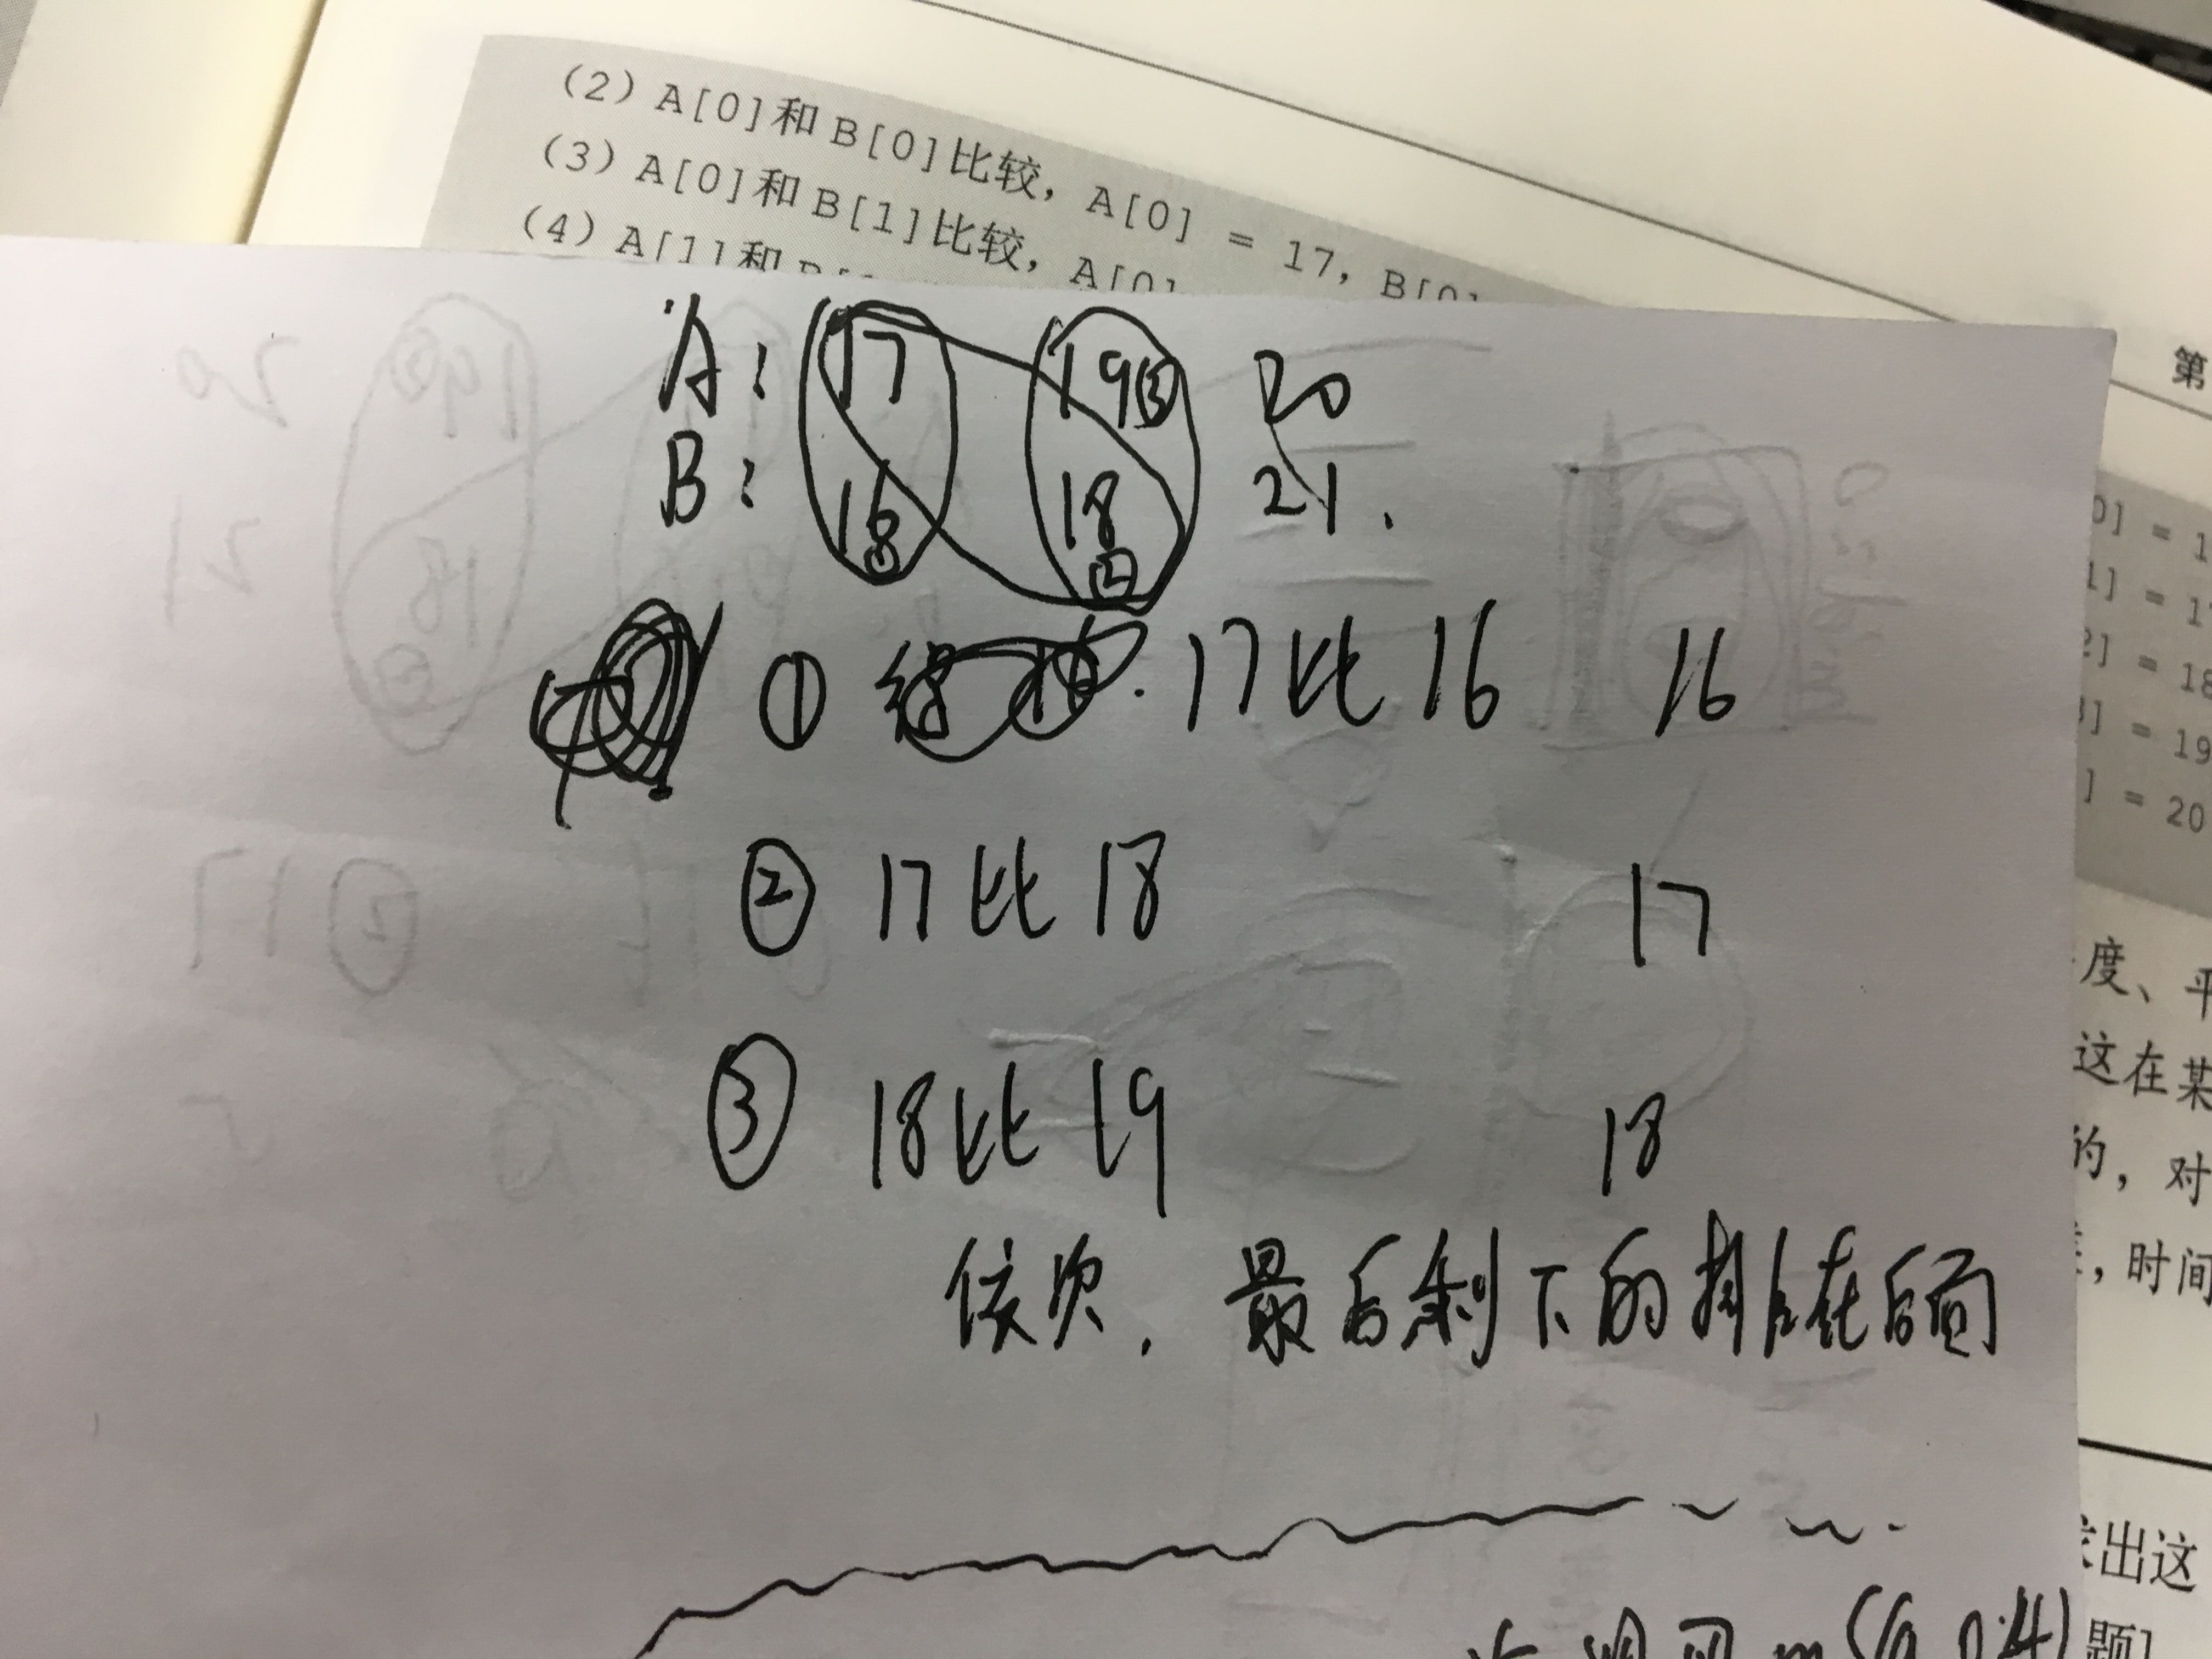 (2) A[0]和B[0]比较, A[0] = 17, B[0]
(3) A[0]和B[1]比较, A[0]
(4) A[1]和
第
A: 17 19③ 20
B: 16① 18② 21.
① 17比16 16
② 17比18 17
③ 18比19 18
依次, 最后剩下的排在后面
0] = 1
1] = 17
2] = 18
] = 19
] = 20
度、平
这在某
的, 对
, 时间
出这
题]